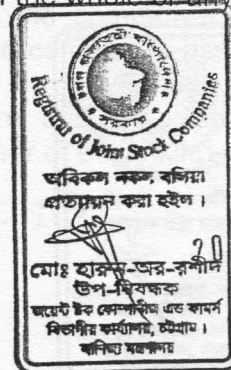 the whole
গণপ্রজাতন্ত্রী বাংলাদেশ
সরকার
Registrar of Joint Stock Companies
অবিকল নকল বলিয়া
প্রত্যায়ন করা হইল।
মোঃ হারুন-অর-রশীদ
উপ-নিবন্ধক
জয়েন্ট স্টক কোম্পানীজ এন্ড ফার্মস
বিভাগীয় কার্যালয়, চট্টগ্রাম।
বানিজ্য মন্ত্রনালয়